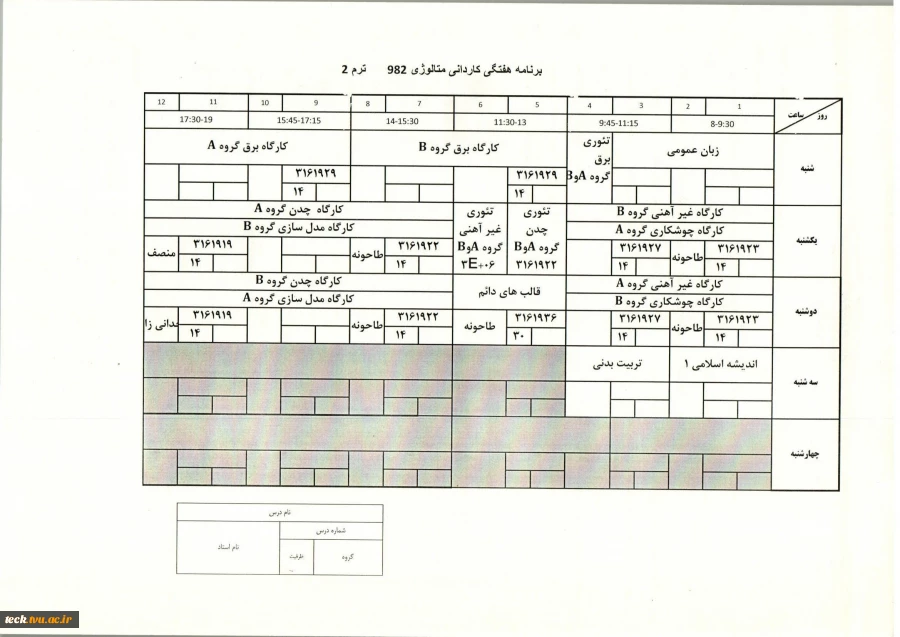 برنامه هفتگی کاردانی متالوژی 982 ترم 2
روز ساعت 1 2 3 4 5 6 7 8 9 10 11 12
8-9:30 9:45-11:15 11:30-13 14-15:30 15:45-17:15 17:30-19
شنبه
زبان عمومی
تئوری
برق
گروه AوB
کارگاه برق گروه B
۳۱۶۱۹۲۹
۱۴
کارگاه برق گروه A
۳۱۶۱۹۲۹
۱۴
یکشنبه
کارگاه غیر آهنی گروه B
کارگاه جوشکاری گروه A
۳۱۶۱۹۲۳ طاحونه ۳۱۶۱۹۲۷
۱۴ ۱۴
تئوری
چدن
گروه AوB
۳۱۶۱۹۲۲
تئوری
غیر آهنی
گروه AوB
۳E+۰۶
کارگاه چدن گروه A
کارگاه مدل سازی گروه B
۳۱۶۱۹۲۲ طاحونه ۳۱۶۱۹۱۹ منصف
۱۴ ۱۴
دوشنبه
کارگاه غیر آهنی گروه A
کارگاه جوشکاری گروه B
۳۱۶۱۹۲۳ طاحونه ۳۱۶۱۹۲۷
۱۴ ۱۴
قالب های دائم
۳۱۶۱۹۳۶ طاحونه
۳۰
کارگاه چدن گروه B
کارگاه مدل سازی گروه A
۳۱۶۱۹۲۲ طاحونه ۳۱۶۱۹۱۹ دانی زا
۱۴ ۱۴
سه شنبه
اندیشه اسلامی ۱ تربیت بدنی
چهارشنبه
نام درس
شماره درس
نام استاد
گروه ظرفیت
teck.tvu.ac.ir